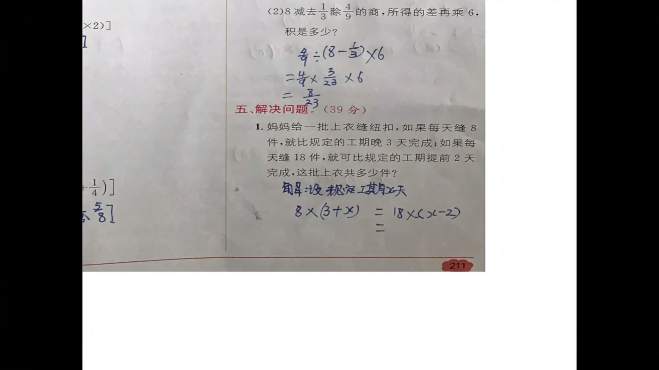 ×2)]
]
1/4)]
5/8]
(2)8减去1/3除4/9的商,所得的差再乘6,
积是多少?
4/9÷(8-1/3)×6
=4/9×3/23×6
=8/23
五、解决问题。(39分)
1.妈妈给一批上衣缝纽扣,如果每天缝8
件,就比规定的工期晚3天完成;如果每
天缝18件,就可比规定的工期提前2天
完成,这批上衣共多少件?
解:设规定工期x天
8×(3+x)=18×(x-2)
=
211